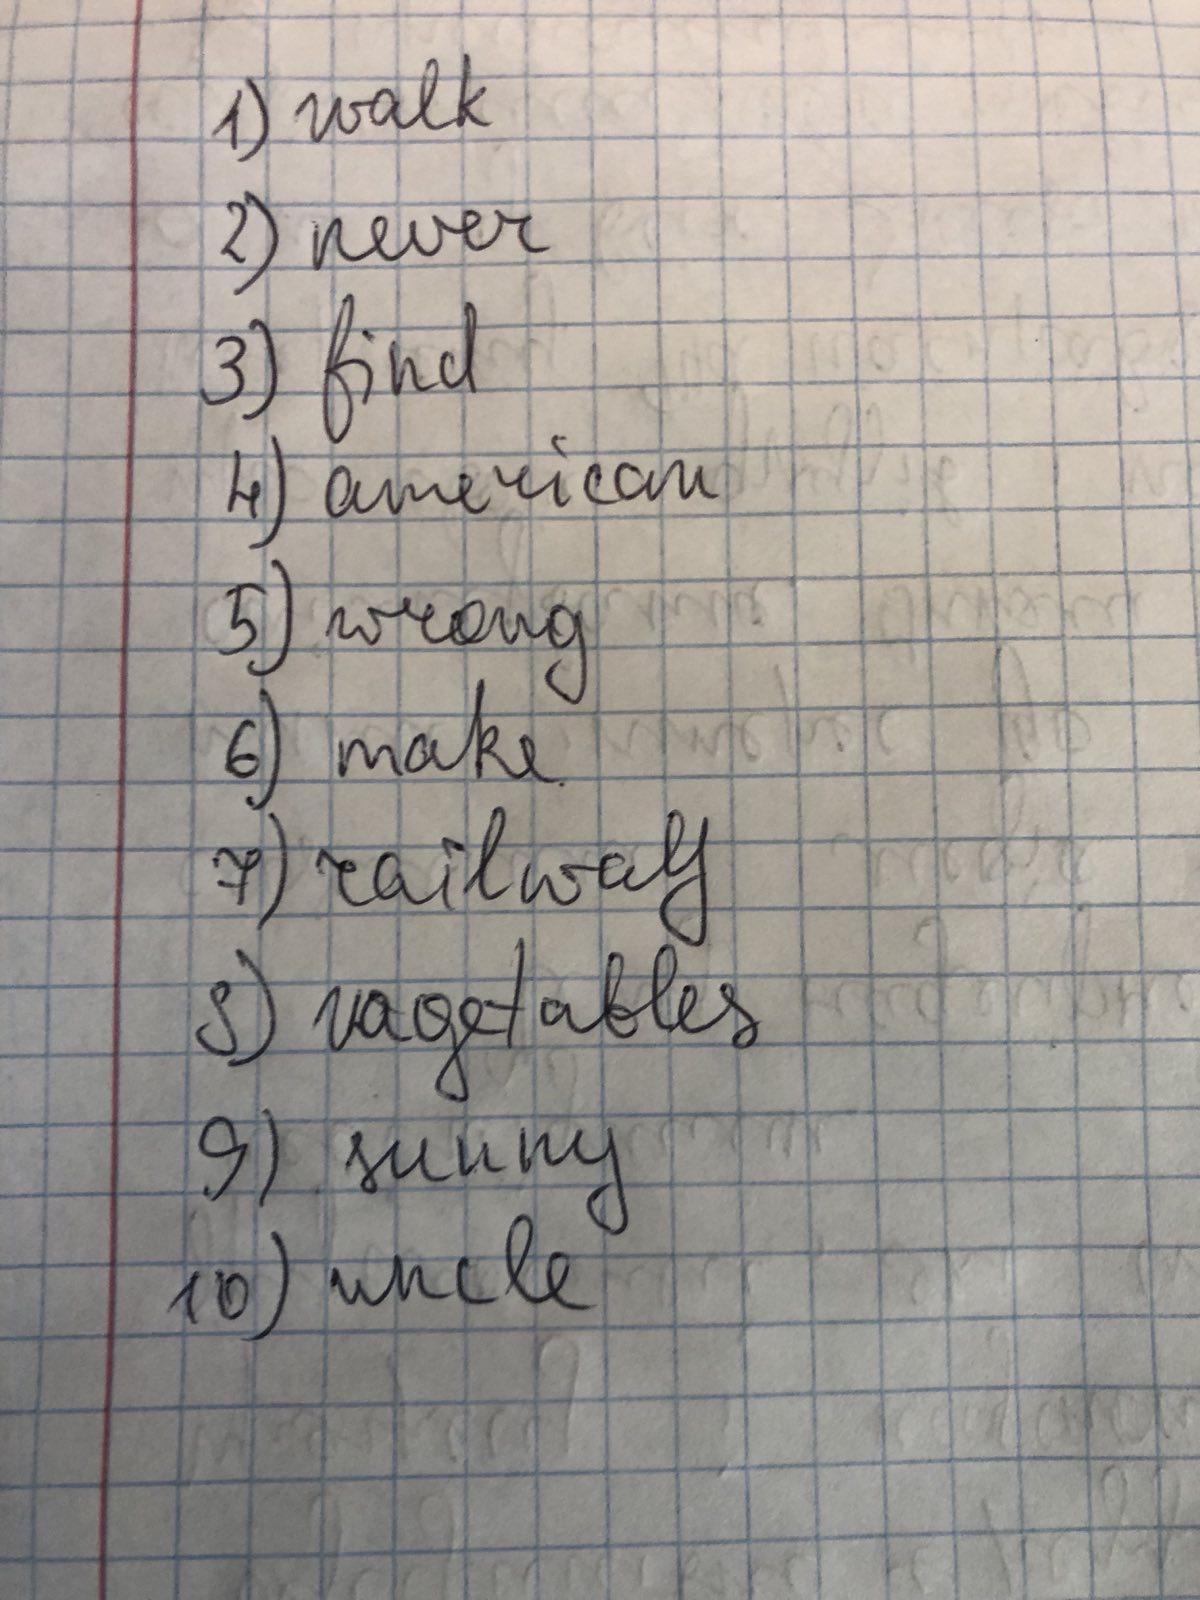 1) walk
2) never
3) find
4) american
5) wrong
6) make
7) railway
8) vagetables
9) sunny
10) uncle